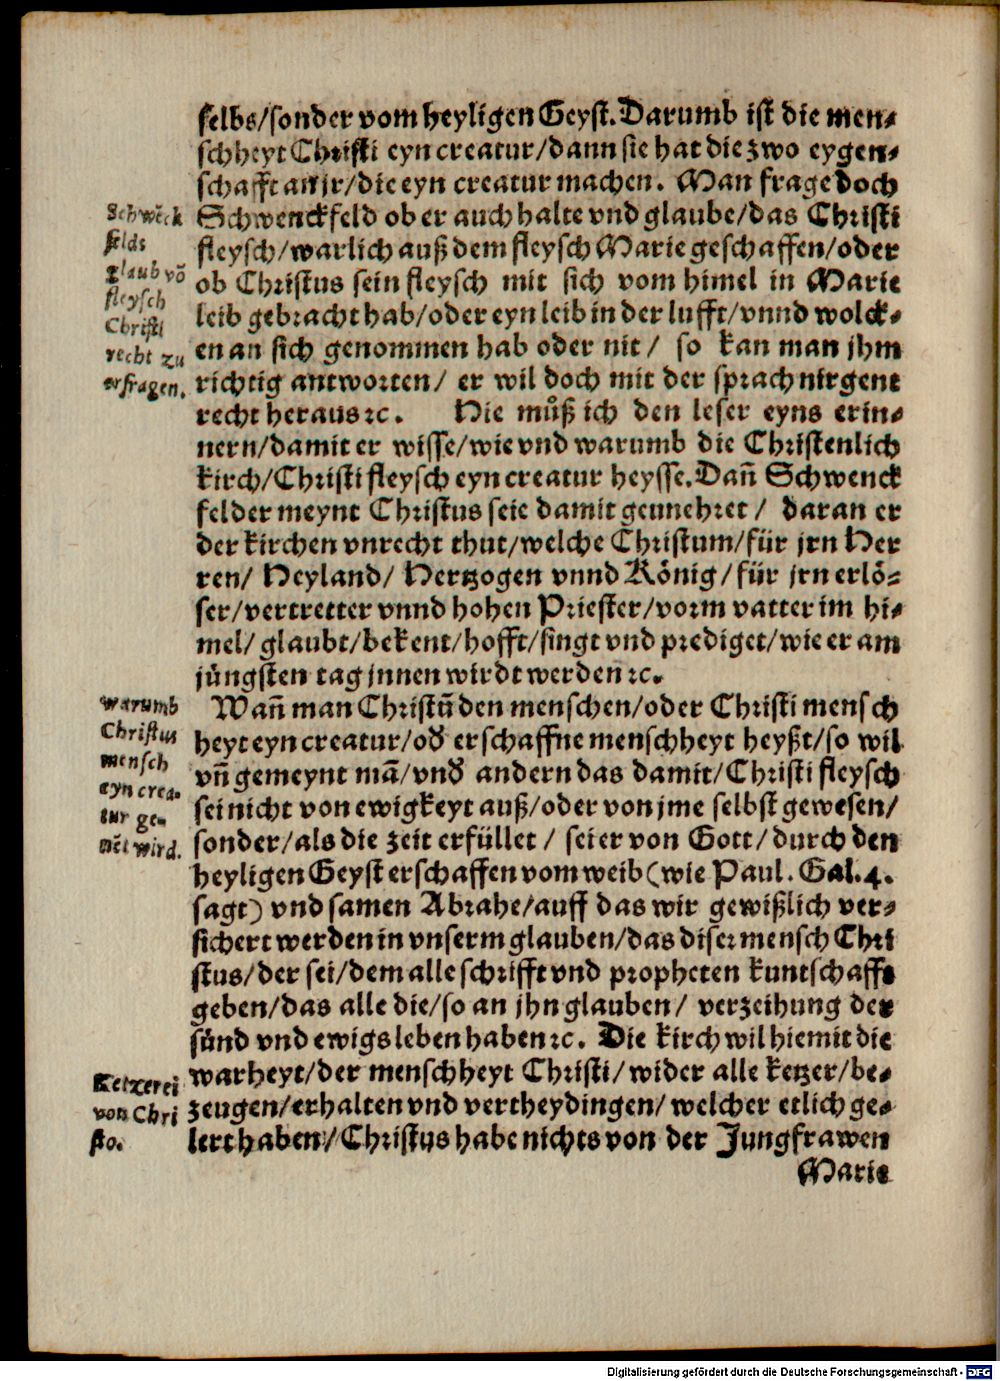 selbs/sonder vom heyligen Geyst. Darumb ist die men⸗
schheyt Christi eyn creatur/dann sie hat die zwo eygen⸗
schafft an jr/die eyn creatur machen. Man frage doch
Schwenckfeld ob er auch halte vnd glaube/das Christi
fleysch/warlich auß dem fleysch Marie geschaffen/oder
ob Christus sein fleysch mit sich vom himel in Marie
leib gebracht hab/oder eyn leib in der lufft/vnnd wolck⸗
en an sich genommen hab oder nit/ so kan man jhm
richtig antworten/ er wil doch mit der sprach nirgent
recht heraus ꝛc. Hie můß ich den leser eyns erin⸗
nern/damit er wisse/wie vnd warumb die Christenlich
kirch/Christi fleysch eyn creatur heysse. Dañ Schwenck
felder meynt Christus seie damit geunehret/ daran er
der kirchen vnrecht thut/welche Christum/für jrn Her
ren/ Heyland/ Hertzogen vnnd König/für jrn erlö⸗
ser/vertretter vnnd hohen Priester/vorm vatter im hi⸗
mel/glaubt/bekent/hofft/singt vnd prediget/wie er am
jüngsten tag jnnen wirdt werden ꝛc.
Wañ man Christũ den menschen/oder Christi mensch
heyt eyn creatur/oď erschaffne menschheyt heyßt/so wil
vñ gemeynt mã/vnď andern das damit/Christi fleysch
sei nicht von ewigkeyt auß/oder von jme selbst gewesen/
sonder/als die zeit erfüllet/ sei er von Gott/durch den
heyligen Geyst erschaffen vom weib (wie Paul. Gal. 4.
sagt) vnd samen Abrahe/auff das wir gewißlich ver⸗
sichert werden in vnserm glauben/das diser mensch Chri
stus/der sei/dem alle schrifft vnd propheten kuntschafft
geben/das alle die/so an jhn glauben/ verzeihung der
sünd vnd ewigs leben haben ꝛc. Die kirch wil hiemit die
warheyt/der menschheyt Christi/wider alle ketzer/be⸗
zeugen/erhalten vnd vertheydingen/welcher etlich ge⸗
lert haben/Christus habe nichts von der Jungfrawen
Marie
Schwẽck
felds
glaub võ
fleysch
Christi
recht zu
erfragen.
warumb
Christus
mensch
eyn crea⸗
tur ge⸗
nẽt wird.
Ketzerei
von Chri
sto.
Digitalisierung gefördert durch die Deutsche Forschungsgemeinschaft - DFG